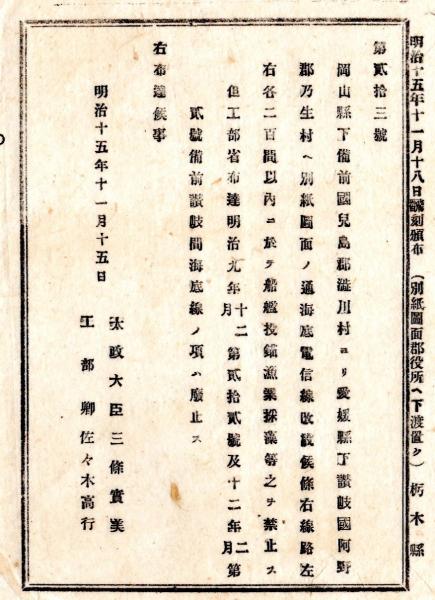 明治十五年十一月十八日飜刻頒布　（別紙圖面郡役所ヘ下渡置ク）　栃木縣
第貳拾三號
岡山縣下備前國兒島郡澁川村ヨリ愛媛縣下讃岐國阿野
郡乃生村ヘ別紙圖面ノ通海底電信線改設候條右線路左
右各二百間以内ニ於テ船艦投錨漁業採藻等之ヲ禁止ス
但工部省布達明治九年十二月第貳拾貳號及十二年二月第
貳號備前讃岐間海底線ノ項ハ廢止ス
右布達候事
明治十五年十一月十五日
太政大臣三條實美
工部卿佐々木高行